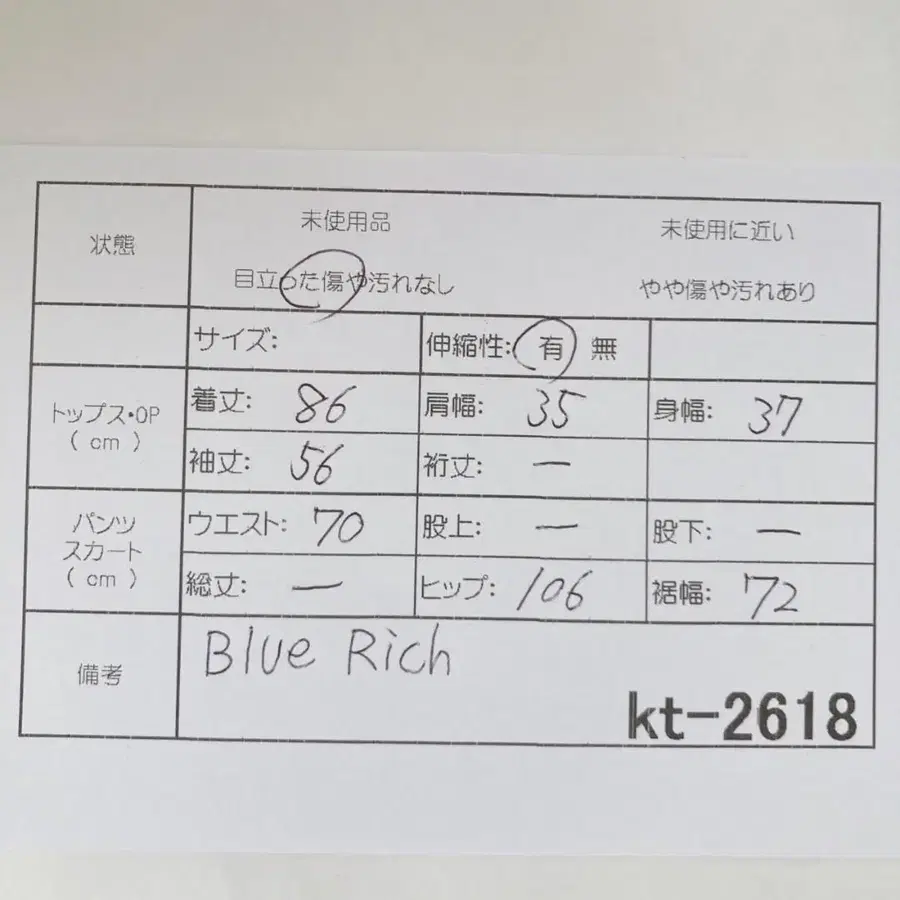 状態
未使用品 未使用に近い
目立った傷や汚れなし やや傷や汚れあり
サイズ: 伸縮性: 有 無
トップス・OP
( cm )
着丈: 86 肩幅: 35 身幅: 37
袖丈: 56 裄丈: ー
パンツ
スカート
( cm )
ウエスト: 70 股上: ー 股下: ー
総丈: ー ヒップ: 106 裾幅: 72
備考
Blue Rich
kt-2618